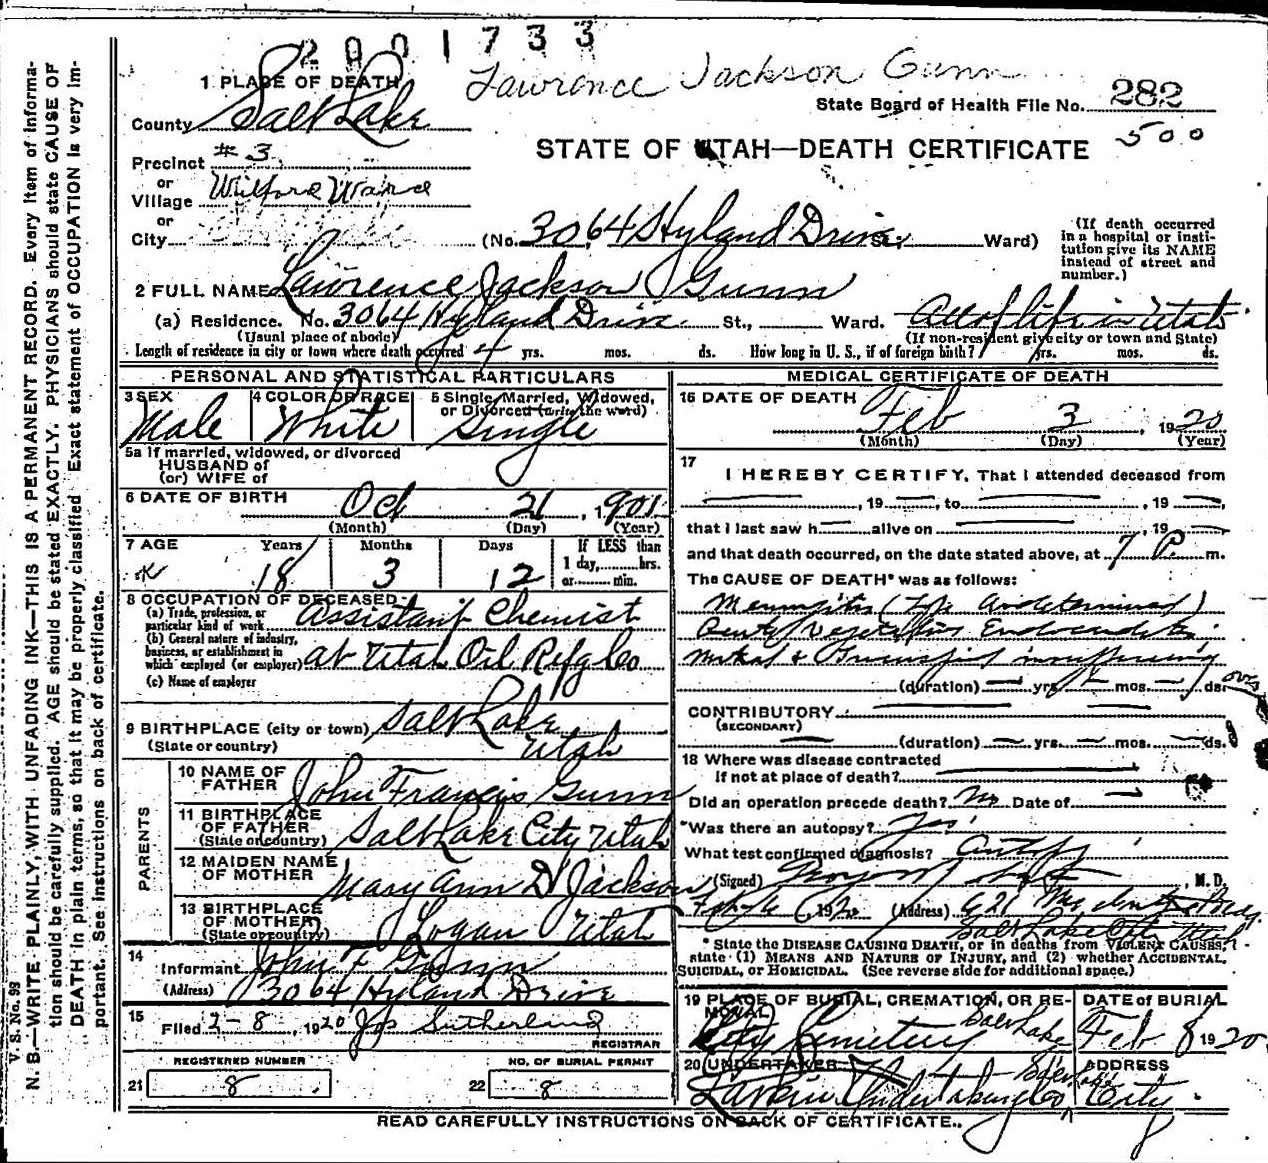 2001733
Lawrence Jackson Gunn
1 PLACE OF DEATH
State Board of Health File No. 282
500
County Salt Lake
STATE OF UTAH—DEATH CERTIFICATE
Precinct #3
or
Village Wilford Ward
or
City
(No. 3064 Hyland Drive St., Ward)
(If death occurred in a hospital or institution give its NAME instead of street and number.)
2 FULL NAME Lawrence Jackson Gunn
(a) Residence. No. 3064 Hyland Drive St., Ward. All of life in Utah
(Usual place of abode) (If non-resident give city or town and State)
Length of residence in city or town where death occurred 4 yrs. mos. ds. How long in U. S., if of foreign birth? yrs. mos. ds.
PERSONAL AND STATISTICAL PARTICULARS
3 SEX Male
4 COLOR OR RACE White
5 Single, Married, Widowed, or Divorced (write the word) Single
5a If married, widowed, or divorced
HUSBAND of
(or) WIFE of
6 DATE OF BIRTH Oct 21, 1901
(Month) (Day) (Year)
7 AGE Years Months Days If LESS than
18 3 12 1 day,........hrs.
or........min.
8 OCCUPATION OF DECEASED
(a) Trade, profession, or particular kind of work Assistant Chemist
(b) General nature of industry, business, or establishment in which employed (or employer) at Utah Oil Refg Co
(c) Name of employer
9 BIRTHPLACE (city or town) Salt Lake
(State or country) Utah
PARENTS
10 NAME OF FATHER John Francis Gunn
11 BIRTHPLACE OF FATHER (State or country) Salt Lake City Utah
12 MAIDEN NAME OF MOTHER Mary Ann D Jackson
13 BIRTHPLACE OF MOTHER (State or country) Logan Utah
14 Informant John F Gunn
(Address) 3064 Hyland Drive
15 Filed 2-8, 1920 Jos Sutherland
REGISTRAR
REGISTERED NUMBER NO. OF BURIAL PERMIT
21 8 22 8
MEDICAL CERTIFICATE OF DEATH
16 DATE OF DEATH Feb 3, 1920
(Month) (Day) (Year)
17 I HEREBY CERTIFY, That I attended deceased from
, 19 , to , 19
that I last saw h alive on , 19
and that death occurred, on the date stated above, at 7 P. m.
The CAUSE OF DEATH* was as follows:
Meningitis (Type undetermined)
Acute Vegetative Endocarditis
Mitral & Tricuspid insufficiency
(duration) yrs. mos. ds. over
CONTRIBUTORY
(SECONDARY)
(duration) yrs. mos. ds.
18 Where was disease contracted
if not at place of death?
Did an operation precede death? No Date of
Was there an autopsy? Yes
What test confirmed diagnosis?
(Signed) , M. D.
Feb 6 1920 (Address) 621
Salt Lake City Utah
* State the DISEASE CAUSING DEATH, or in deaths from VIOLENT CAUSES, state (1) MEANS AND NATURE OF INJURY, and (2) whether ACCIDENTAL, SUICIDAL, or HOMICIDAL. (See reverse side for additional space.)
19 PLACE OF BURIAL, CREMATION, OR REMOVAL
City Cemetery Salt Lake
DATE of BURIAL
Feb 8 1920
20 UNDERTAKER
Larkin Undertaking Co
ADDRESS
Salt Lake City
READ CAREFULLY INSTRUCTIONS ON BACK OF CERTIFICATE.
V. S. No. 98
N. B.—WRITE PLAINLY, WITH UNFADING INK—THIS IS A PERMANENT RECORD. Every item of information should be carefully supplied. AGE should be stated EXACTLY. PHYSICIANS should state CAUSE OF DEATH in plain terms, so that it may be properly classified. Exact statement of OCCUPATION is very important. See instructions on back of certificate.